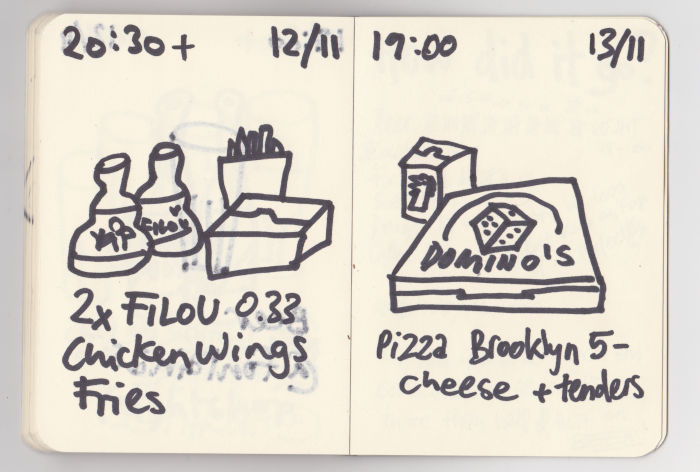 20:30+ 12/11
FILOU
2x FILOU 0.33
Chicken Wings
Fries
19:00 13/11
DOMINO'S
Pizza Brooklyn 5-
cheese + tenders